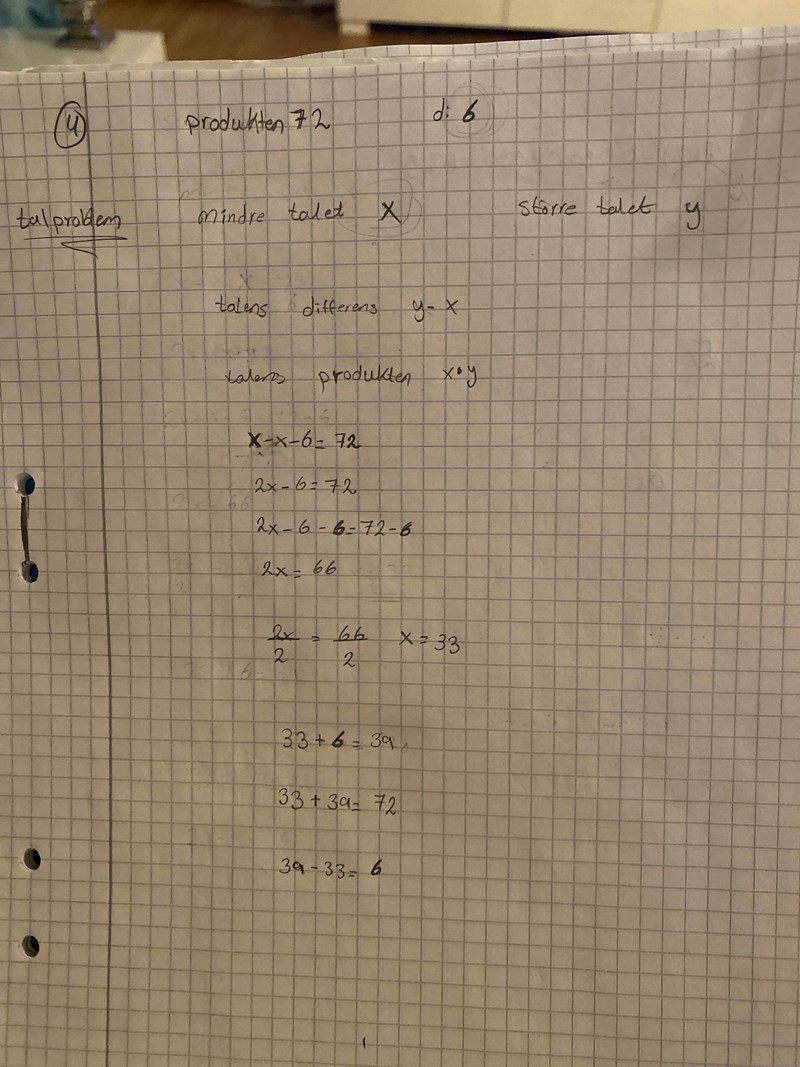 4 produkten 72 d: 6
talproblem mindre talet x större talet y
talens differens y-x
talens produkten x•y
x-x-6=72
2x-6=72
2x-6-6=72-6
2x=66
2x/2 = 66/2 x=33
33+6=39
33+39=72
39-33=6